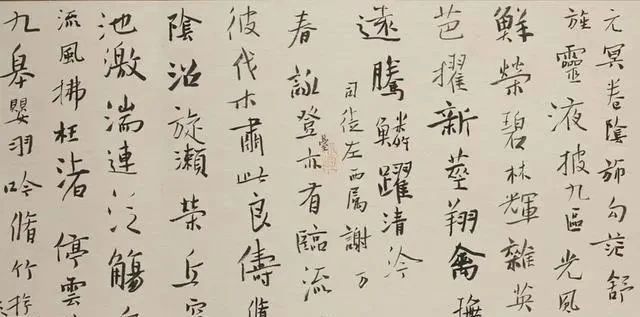 元冥卷陰旂勾茫舒
旌靈液披九區光風
鮮榮碧林輝雜英
芭擢新莖翔禽撫
遠騰鱗躍清泠
司徒左西属謝万
春詠登臺亦有臨流
彼伐木肅此良儔脩
陰沼旋瀨榮丘
池激湍連泛觴
流風拂枉渚停雲
九皋嬰羽吟脩竹